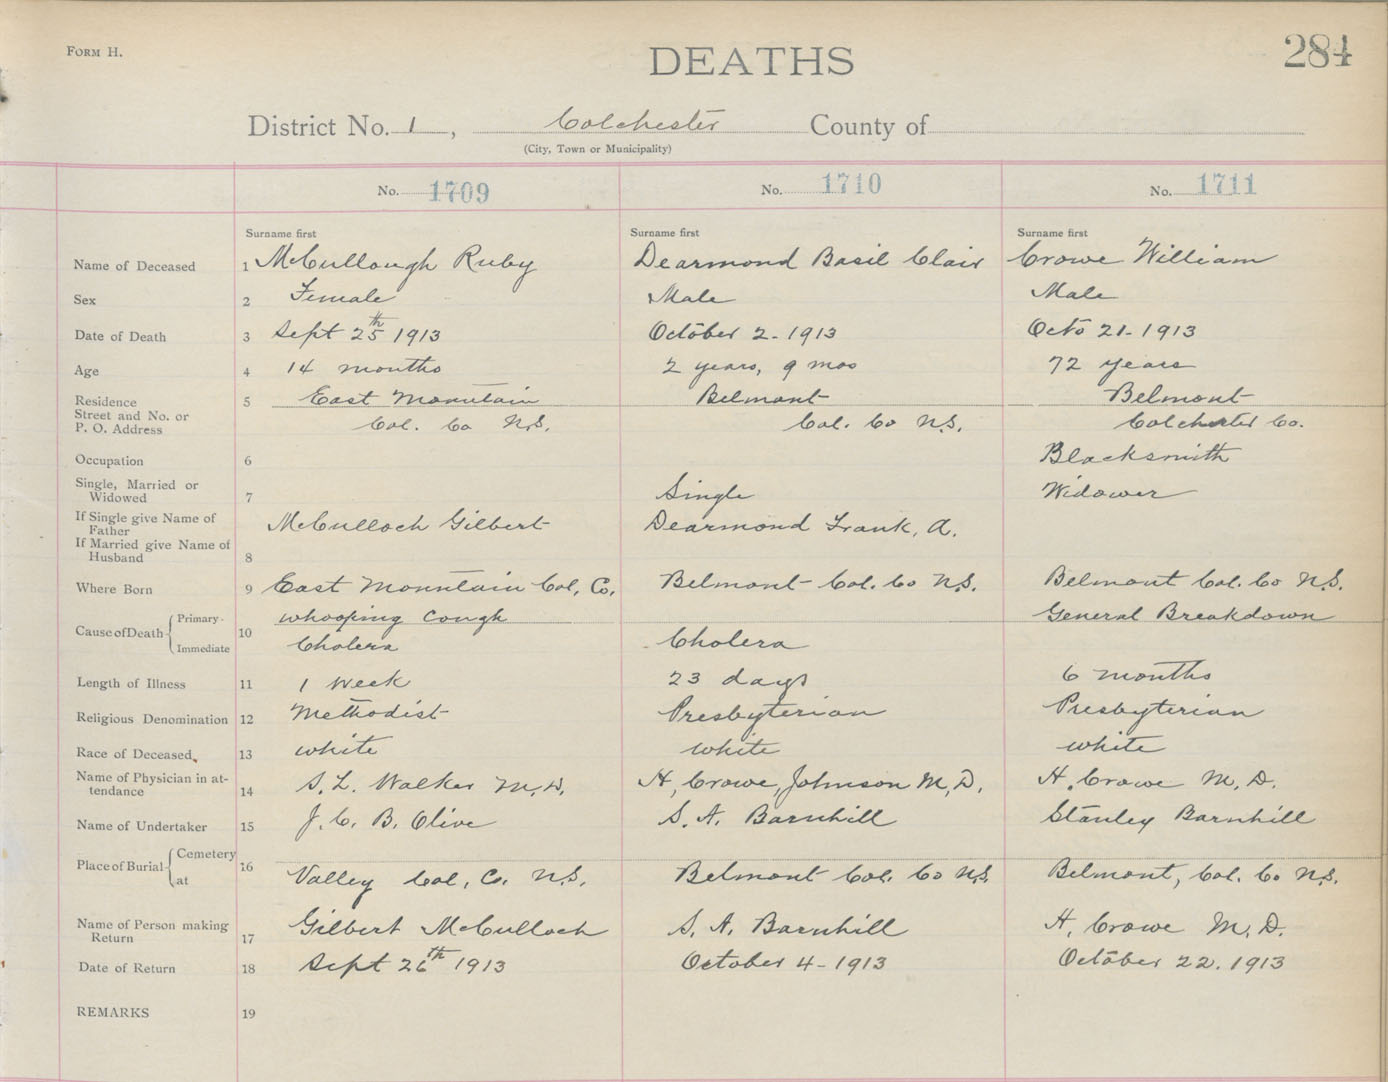 FORM H.
DEATHS
284
District No. 1, Colchester County of
(City, Town or Municipality)
No. 1709 No. 1710 No. 1711
Surname first Surname first Surname first
Name of Deceased 1 McCullough Ruby Dearmond Basil Clair Crowe William
Sex 2 Female Male Male
Date of Death 3 Sept 25th 1913 October 2 - 1913 Octo 21 - 1913
Age 4 14 months 2 years, 9 mos 72 years
Residence 5 East Mountain Belmont Belmont
Street and No. or
P. O. Address Col. Co N.S. Col. Co N.S. Colchester Co.
Occupation 6 Blacksmith
Single, Married or
Widowed 7 Single Widower
If Single give Name of
Father McCulloch Gilbert Dearmond Frank, A.
If Married give Name of
Husband 8
Where Born 9 East Mountain Col, Co. Belmont - Col. Co N.S. Belmont Col. Co N.S.
Cause of Death Primary 10 whooping cough General Breakdown
Immediate Cholera Cholera
Length of Illness 11 1 week 23 days 6 months
Religious Denomination 12 Methodist Presbyterian Presbyterian
Race of Deceased 13 white white white
Name of Physician in at-
tendance 14 S. L. Walker M.D. H, Crowe, Johnson M, D, H. Crowe M, D.
Name of Undertaker 15 J. C. B. Olive S. A. Barnhill Stanley Barnhill
Place of Burial Cemetery 16
at Valley Col, Co. N.S. Belmont Col. Co N.S. Belmont, Col. Co N.S.
Name of Person making
Return 17 Gilbert McCulloch S. A. Barnhill H, Crowe M. D.
Date of Return 18 Sept 26th 1913 October 4 - 1913 October 22. 1913
REMARKS 19